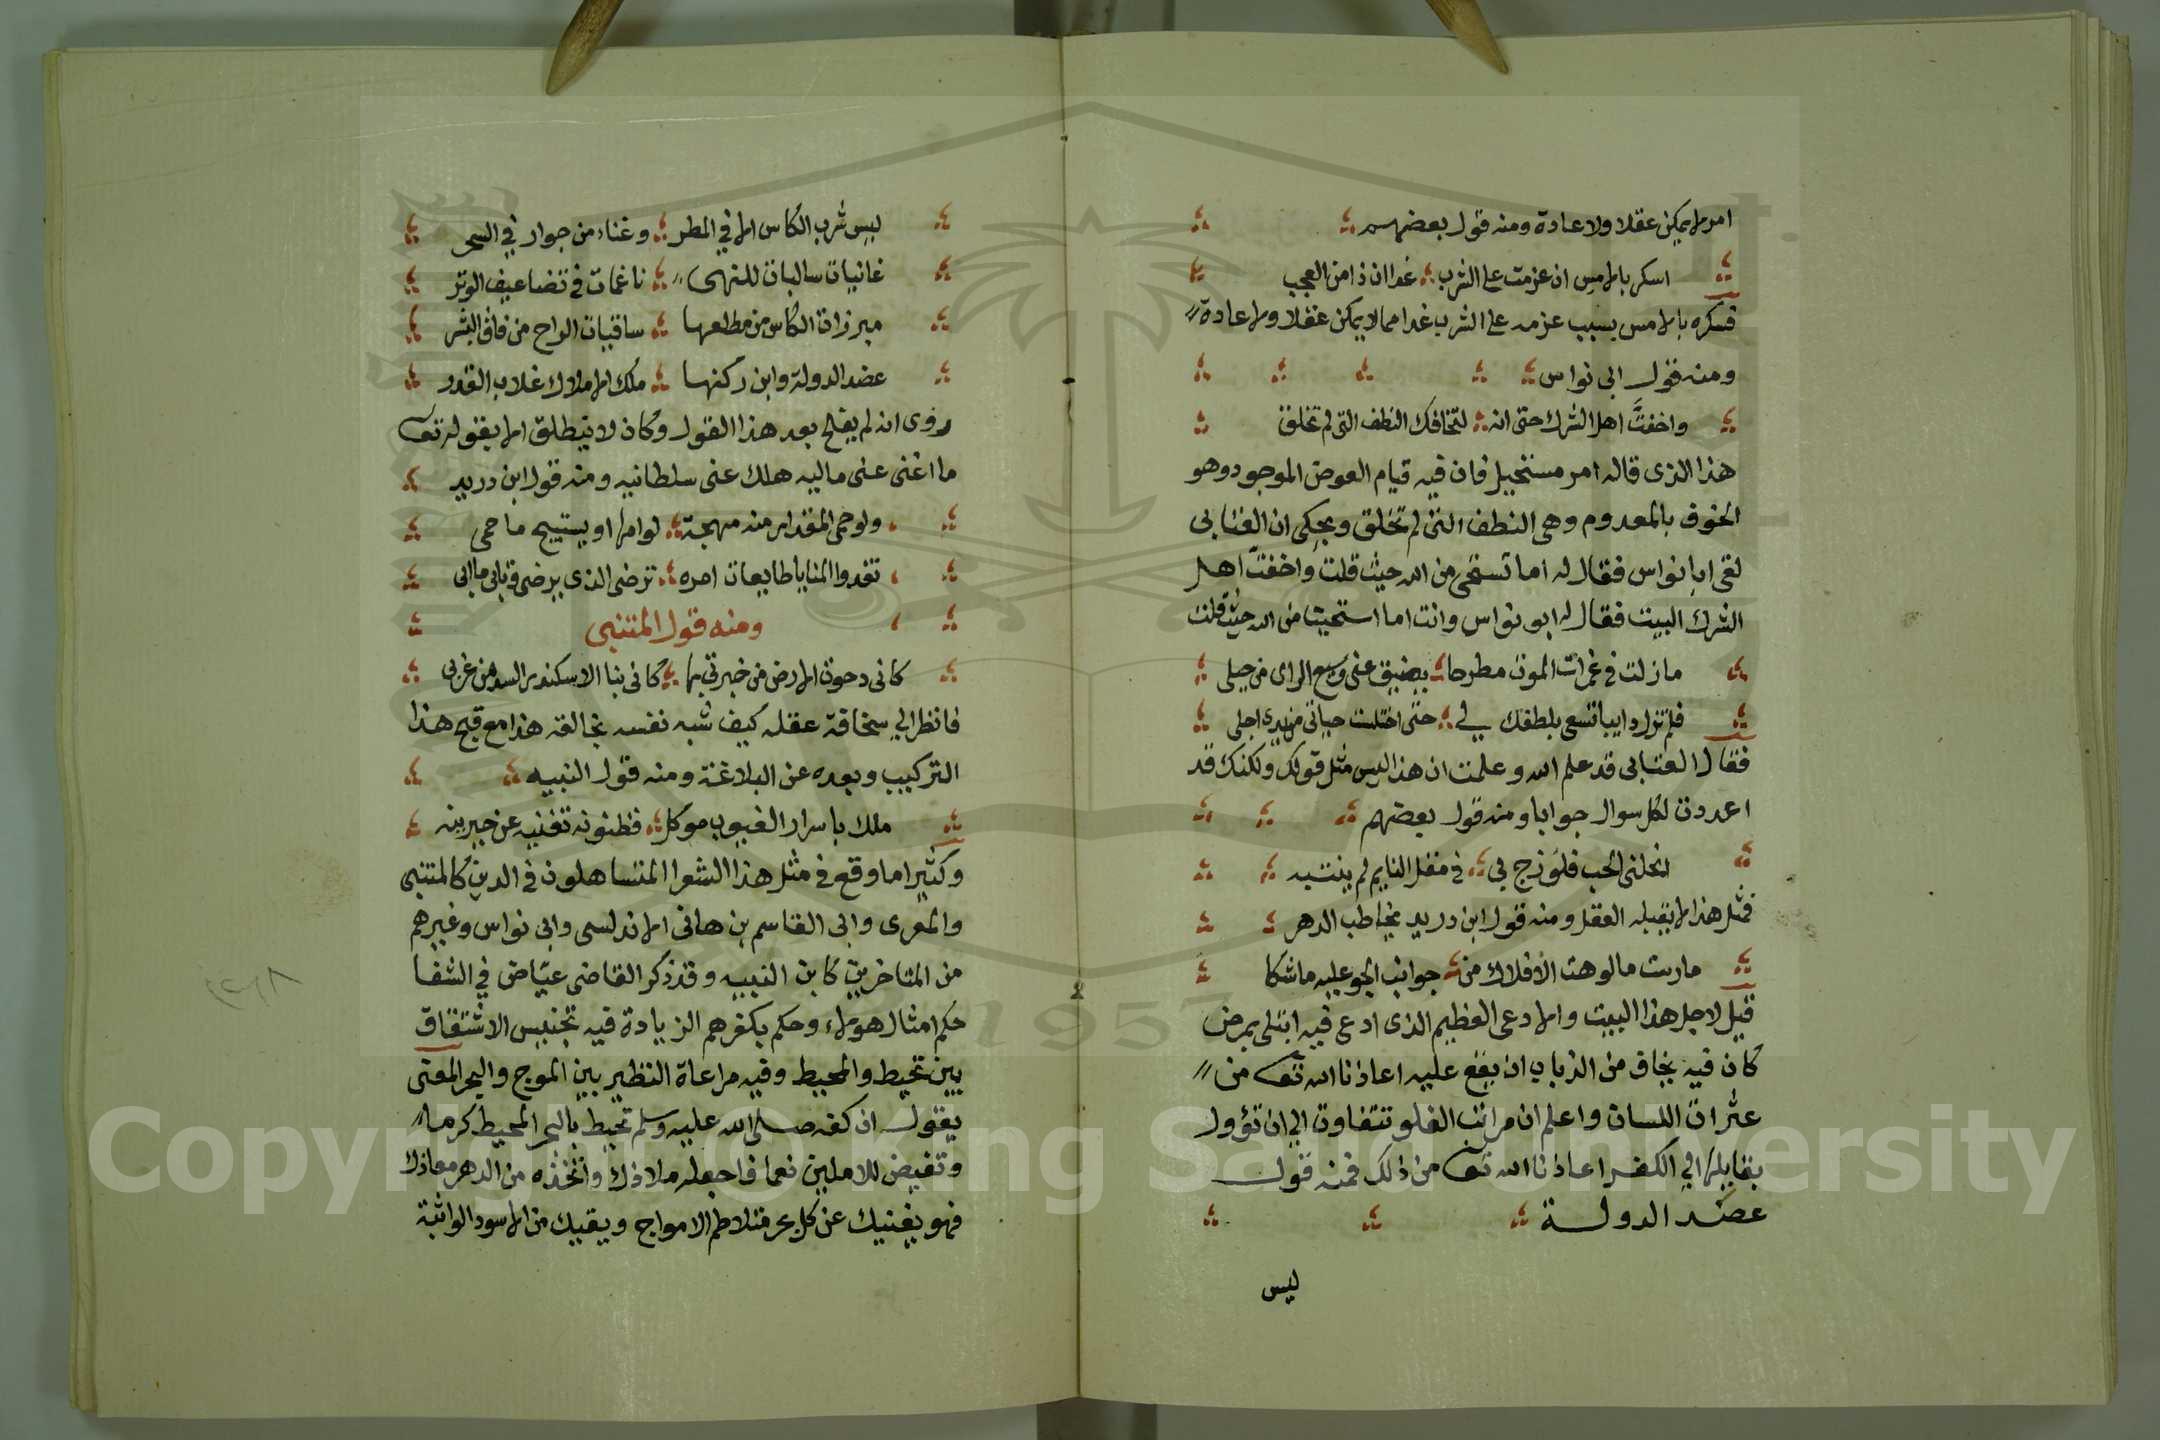 امر لا يمكن عقلا ولا عادة ومنه قول بعضهم
اسكر بالامس ان عزمت على الشرب غدا ان ذا من العجب
فسكره بالامس بسبب عزمه على الشرب غدا مما لا يمكن عقلا ولا عادة
ومنه قول ابى نواس
واخفتَ اهل الشرك حتى انه لتخافك النطف التى لم تخلق
هذا الذى قاله امر مستحيل فان فيه قيام العرض الموجود وهو
الخوف بالمعدوم وهى النطف التى لم تخلق ويحكى ان العتابى
لقى ابا نواس فقال له اما تستحى من الله حيث قلت واخفتَ اهل
الشرك البيت فقال له ابو نواس وانت اما استحيت من الله حيث قلت
مازلت فى غمرات الموت مطرحا يضيق عنى وسيع الراى من حيلى
فلم تزل دايبا تسعى بلطفك لي حتى اختلست حياتى من يدى اجلى
فقال العتابى قد علم الله وعلمت ان هذا ليس مثل قولك ولكنك قد
اعددت لكل سوال جوابا ومنه قول بعضهم
انحلنى الحب فلو زج بى فى مقل النايم لم ينتبه
فمثل هذا لا يقبله العقل ومنه قول ابن دريد يخاطب الدهر
مارست ما لو هوت الافلاك من جوانب الجو عليه ما شكا
قيل لاجل هذا البيت والادعى العظيم الذى ادعى فيه ابتلى بمرض
كان فيه يخاف من الذباب ان يقع عليه اعاذنا الله تعـ من
عثرات اللسان واعلم ان مراتب الغلو تتفاوت الي ان تؤول
بقايلها الي الكفر اعاذنا الله تعـ من ذلك فمنه قول
عضد الدولة
ليس
ليس شرب الكاس الا في المطر وغناء من جوار في السحر
غانيات سالبات للنهى ناغمات فى تضاعيف الوتر
مبرزات الكاس من مطلعها ساقيات الراح من فاق البشر
عضد الدولة وابن ركنها ملك الاملاك غلاب القدر
روى انه لم يفلح بعد هذا القول وكان لا ينطلق الا بقوله تعـ
ما اغنى عنى ماليه هلك عنى سلطانيه ومنه قول ابن دريد
ولو حمى المقدار منه مهجة لرامها او يستبيح ما حمى
تغدوا المنايا طايعات امره ترضى الذى يرضى وتابى ما ابى
ومنه قول المتنبى
كانى دحوت الارض من خبرتى بها كانى بنا الاسكندر السد من عزمى
فانظر الي سخافة عقله كيف شبه نفسه بخالقه هذا مع قبح هذا
التركيب وبعده عن البلاغة ومنه قول النبيه
ملك باسرار الغيوب موكل فظنونه تغنيه عن جبرينه
وكثيرا ما وقع فى مثل هذا الشعرا المتساهلون فى الدين كالمتنبى
والمعرى وابى القاسم بن هانى الاندلسى وابى نواس وغيرهم
من المتاخرين كابن النبيه وقد ذكر القاضى عياض في الشفا
حكم امثال هولاء وحكم بكفرهم الزيادة فيه تجنيس الاشتقاق
بين تحيط والمحيط وفيه مراعاة النظير بين الموج والبحر المعنى
يقول ان كفه صلى الله عليه وسلم تحيط بالبحر المحيط كرما
وتفيض للاملين نعما فاجعله ملاذك واتخذه من الدهر معاذك
فهو يغنيك عن كل بحر متلاطم الامواج ويقيك من الاسود الواثبة
Copyright © King Saud University
1957